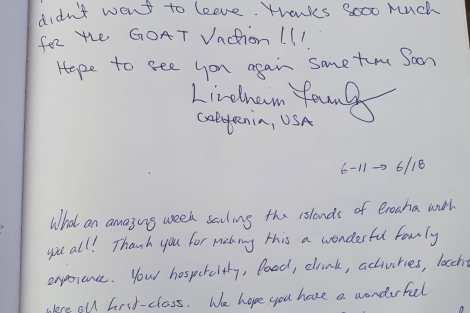 didn't want to leave. Thanks Sooo Much
for the GOAT Vaction!!!
Hope to see you again sometime Soon
Lindheim Family
California, USA
6-11 → 6/18
What an amazing week sailing the islands of Croatia with
you all! Thank you for making this a wonderful family
experience. Your hospitality, food, drink, activities, locatio
were all first-class. We hope you have a wonderful